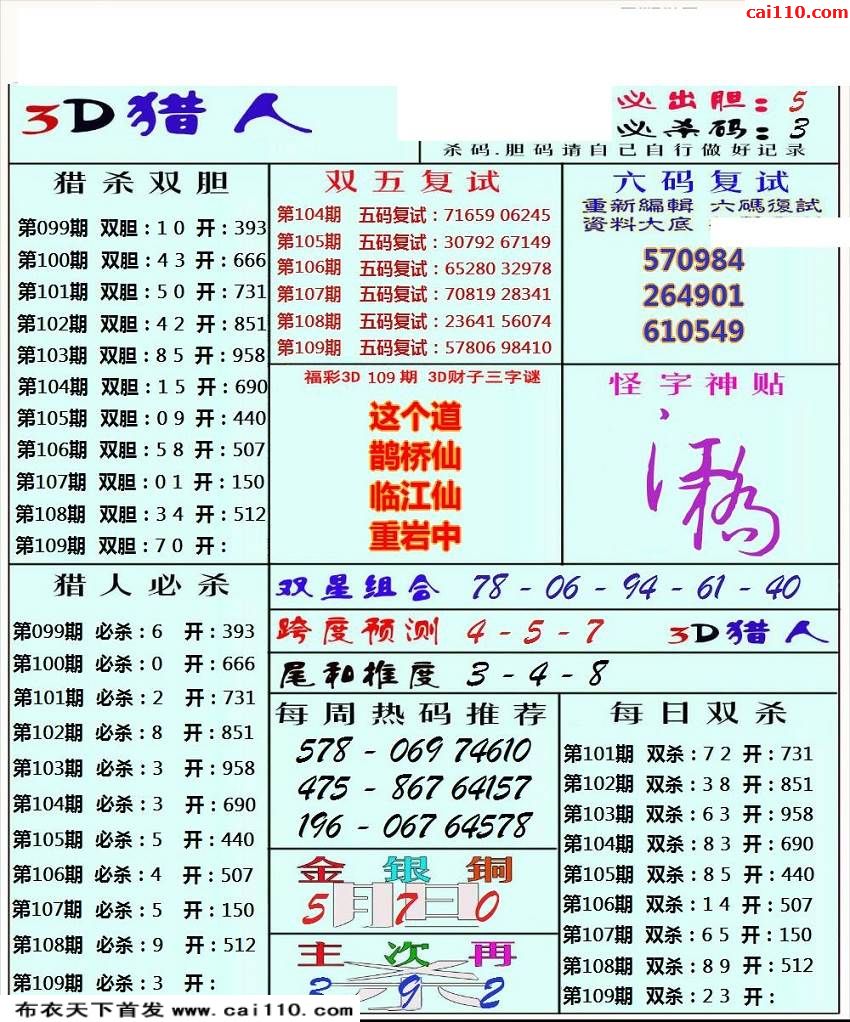 cai110.com
3D猎人
必出胆：5
必杀码：3
杀码.胆码请自己自行做好记录
猎杀双胆
第099期 双胆：10 开：393
第100期 双胆：43 开：666
第101期 双胆：50 开：731
第102期 双胆：42 开：851
第103期 双胆：85 开：958
第104期 双胆：15 开：690
第105期 双胆：09 开：440
第106期 双胆：58 开：507
第107期 双胆：01 开：150
第108期 双胆：34 开：512
第109期 双胆：70 开：
双五复试
第104期 五码复试：71659 06245
第105期 五码复试：30792 67149
第106期 五码复试：65280 32978
第107期 五码复试：70819 28341
第108期 五码复试：23641 56074
第109期 五码复试：57806 98410
六码复试
重新編輯 六碼復試
資料大底
570984
264901
610549
福彩3D 109期 3D财子三字谜
这个道
鹊桥仙
临江仙
重岩中
怪字神贴
猎人必杀
第099期 必杀：6 开：393
第100期 必杀：0 开：666
第101期 必杀：2 开：731
第102期 必杀：8 开：851
第103期 必杀：3 开：958
第104期 必杀：3 开：690
第105期 必杀：5 开：440
第106期 必杀：4 开：507
第107期 必杀：5 开：150
第108期 必杀：9 开：512
第109期 必杀：3 开：
双星组合 78 - 06 - 94 - 61 - 40
跨度预测 4 - 5 - 7 3D猎人
尾和推度 3 - 4 - 8
每周热码推荐
578 - 069 74610
475 - 867 64157
196 - 067 64578
金 银 铜
5 7 0
主 次 再
3 9 2
每日双杀
第101期 双杀：72 开：731
第102期 双杀：38 开：851
第103期 双杀：63 开：958
第104期 双杀：83 开：690
第105期 双杀：85 开：440
第106期 双杀：14 开：507
第107期 双杀：65 开：150
第108期 双杀：89 开：512
第109期 双杀：23 开：
布衣天下首发 www.cai110.com